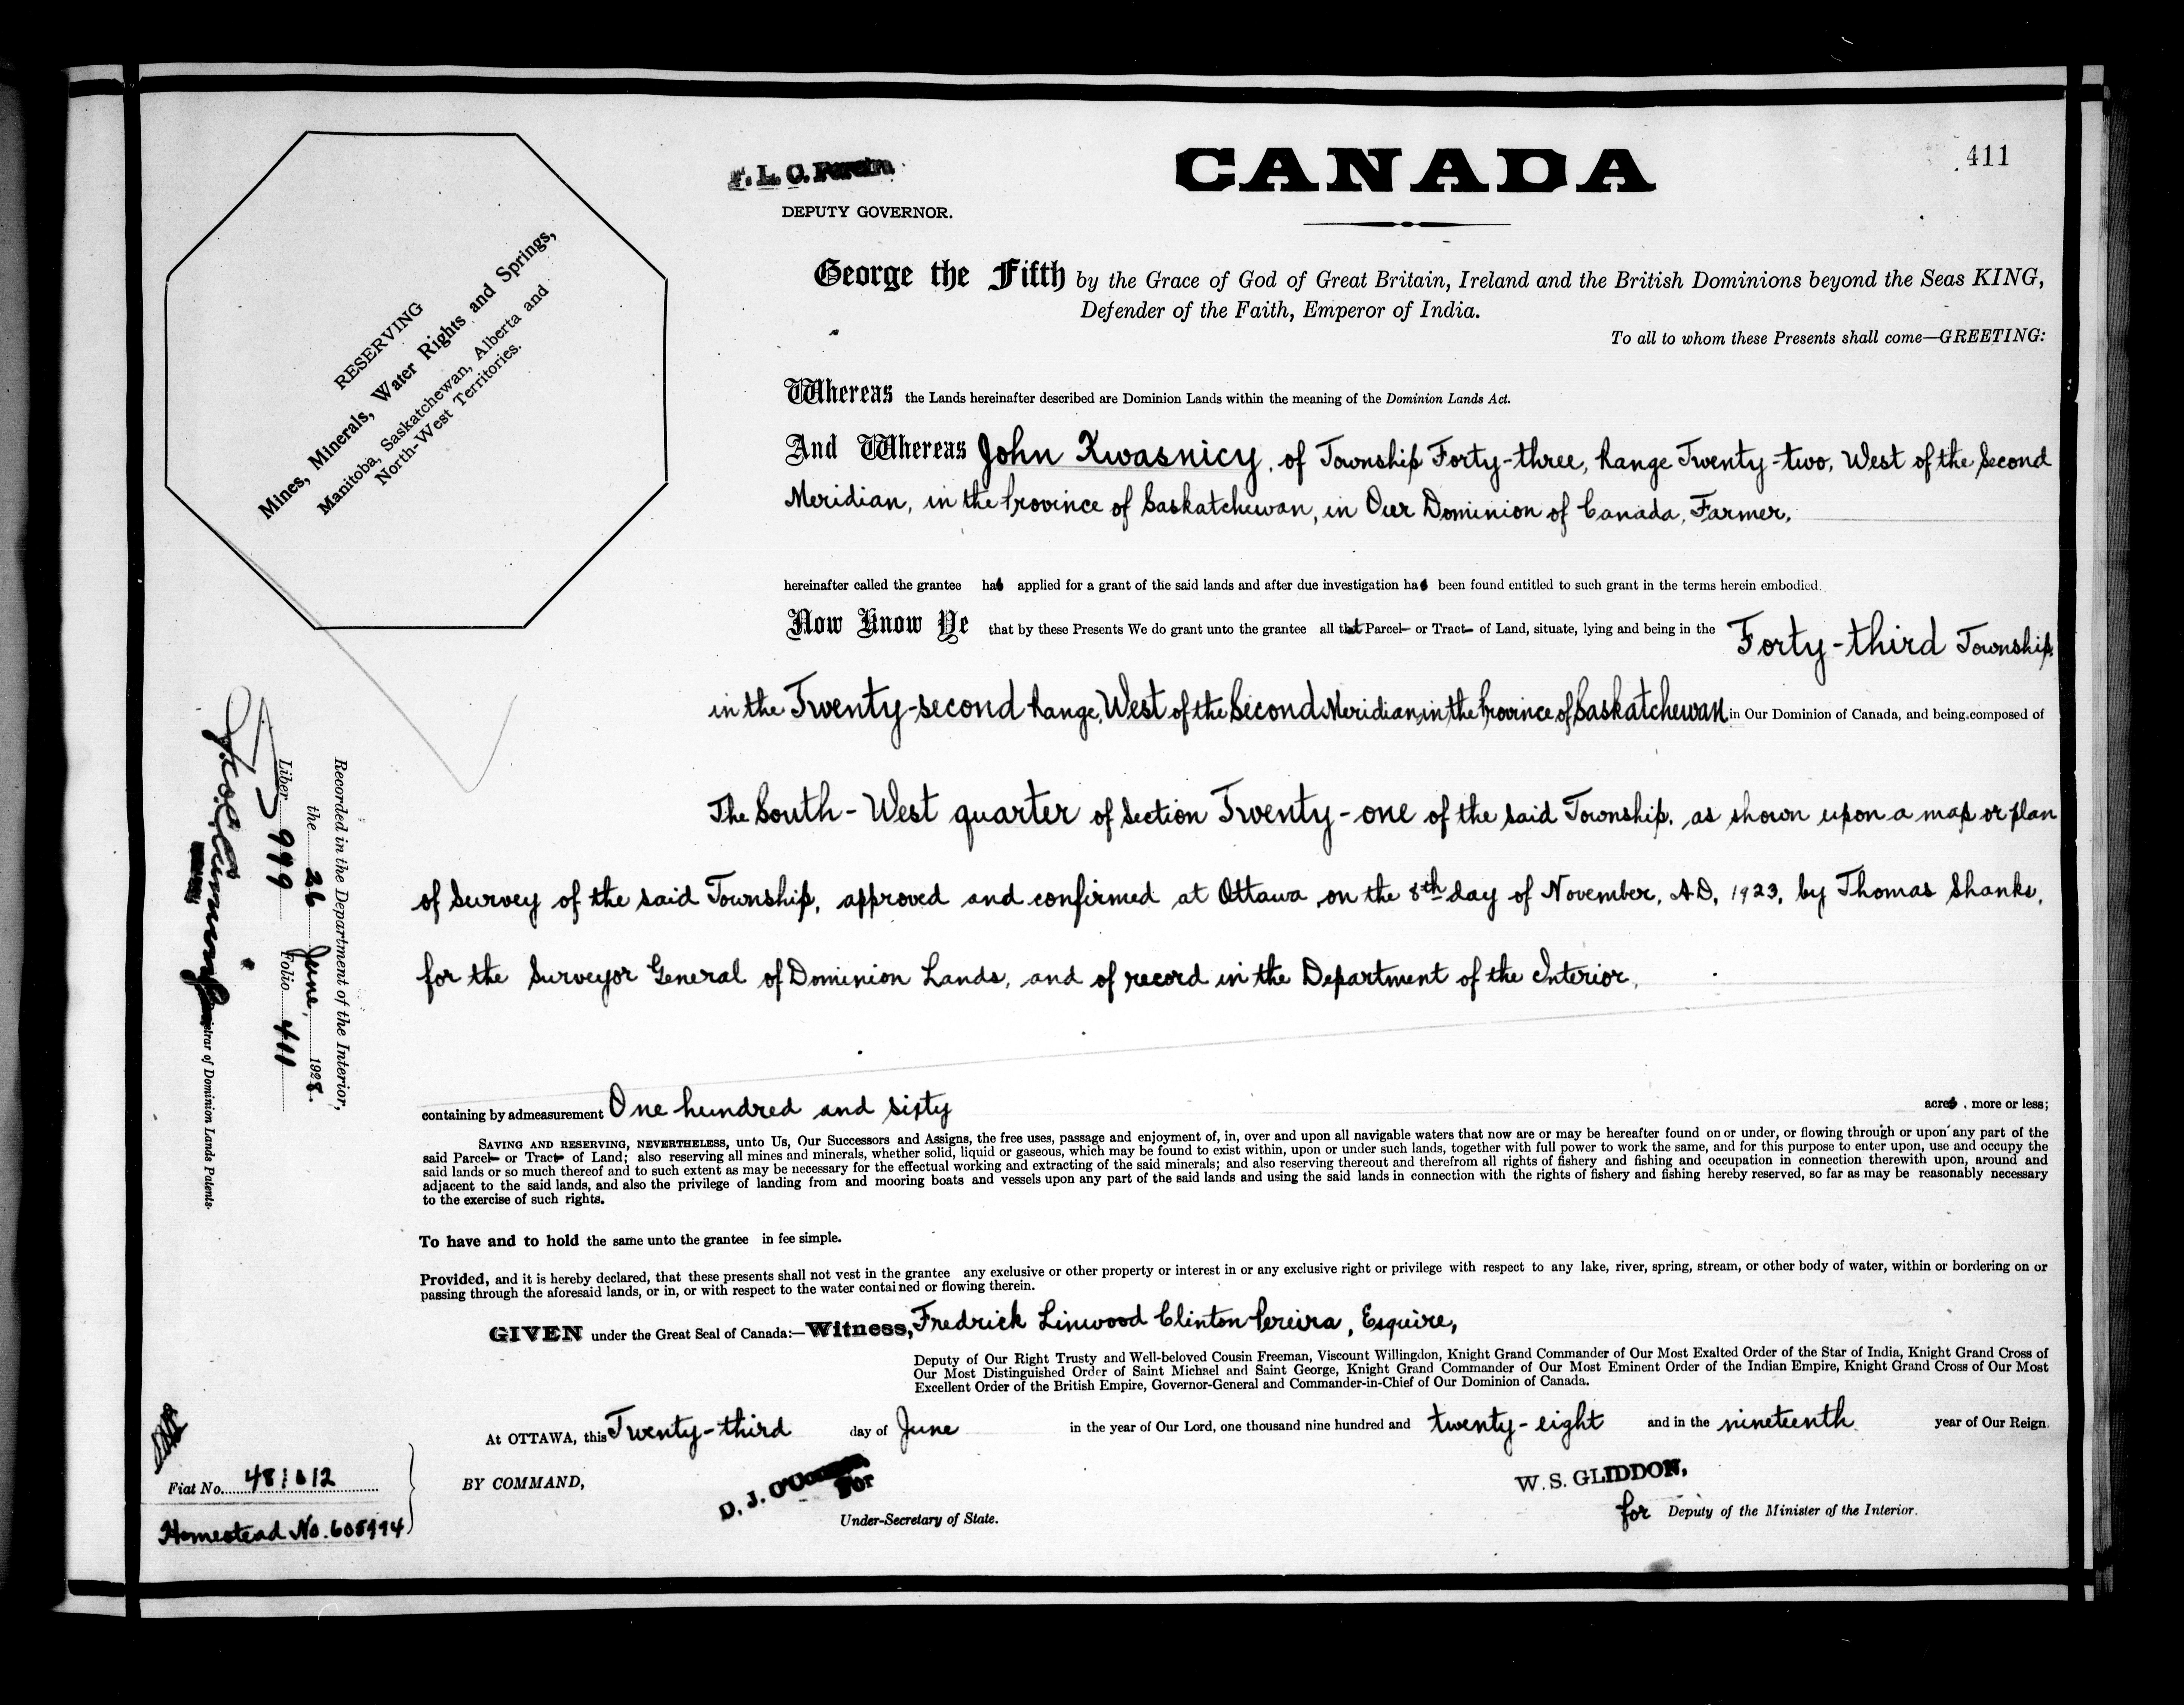 411
CANADA
F. L. C. Pereira
DEPUTY GOVERNOR.
RESERVING
Mines, Minerals, Water Rights and Springs,
Manitoba, Saskatchewan, Alberta and
North-West Territories.
George the Fifth by the Grace of God of Great Britain, Ireland and the British Dominions beyond the Seas KING,
Defender of the Faith, Emperor of India.
To all to whom these Presents shall come—GREETING:
Whereas the Lands hereinafter described are Dominion Lands within the meaning of the Dominion Lands Act.
And Whereas John Kwasnicy, of Township Forty-three, Range Twenty-two, West of the Second
Meridian, in the Province of Saskatchewan, in Our Dominion of Canada, Farmer,
hereinafter called the grantee has applied for a grant of the said lands and after due investigation has been found entitled to such grant in the terms herein embodied.
Now Know Ye that by these Presents We do grant unto the grantee all that Parcel or Tract of Land, situate, lying and being in the Forty-third Township
in the Twenty-second Range, West of the Second Meridian, in the Province of Saskatchewan in Our Dominion of Canada, and being composed of
The South-West quarter of Section Twenty-one of the said Township, as shown upon a map or plan
of Survey of the said Township, approved and confirmed at Ottawa on the 8th day of November, A.D. 1923, by Thomas Shanks,
for the Surveyor General of Dominion Lands, and of record in the Department of the Interior,
containing by admeasurement One hundred and sixty acres, more or less;
SAVING AND RESERVING, NEVERTHELESS, unto Us, Our Successors and Assigns, the free uses, passage and enjoyment of, in, over and upon all navigable waters that now are or may be hereafter found on or under, or flowing through or upon any part of the
said Parcel or Tract of Land; also reserving all mines and minerals, whether solid, liquid or gaseous, which may be found to exist within, upon or under such lands, together with full power to work the same, and for this purpose to enter upon, use and occupy the
said lands or so much thereof and to such extent as may be necessary for the effectual working and extracting of the said minerals; and also reserving thereout and therefrom all rights of fishery and fishing and occupation in connection therewith upon, around and
adjacent to the said lands, and also the privilege of landing from and mooring boats and vessels upon any part of the said lands and using the said lands in connection with the rights of fishery and fishing hereby reserved, so far as may be reasonably necessary
to the exercise of such rights.
To have and to hold the same unto the grantee in fee simple.
Provided, and it is hereby declared, that these presents shall not vest in the grantee any exclusive or other property or interest in or any exclusive right or privilege with respect to any lake, river, spring, stream, or other body of water, within or bordering on or
passing through the aforesaid lands, or in, or with respect to the water contained or flowing therein.
GIVEN under the Great Seal of Canada:—Witness, Fredrick Linwood Clinton Pereira, Esquire,
Deputy of Our Right Trusty and Well-beloved Cousin Freeman, Viscount Willingdon, Knight Grand Commander of Our Most Exalted Order of the Star of India, Knight Grand Cross of
Our Most Distinguished Order of Saint Michael and Saint George, Knight Grand Commander of Our Most Eminent Order of the Indian Empire, Knight Grand Cross of Our Most
Excellent Order of the British Empire, Governor-General and Commander-in-Chief of Our Dominion of Canada.
At OTTAWA, this Twenty-third day of June in the year of Our Lord, one thousand nine hundred and twenty-eight and in the nineteenth year of Our Reign.
BY COMMAND,
D. J. O'
For
Under-Secretary of State.
W. S. GLIDDON,
for Deputy of the Minister of the Interior.
Recorded in the Department of the Interior,
the 26 June, 1928.
Liber 999 Folio 411
Registrar of Dominion Lands Patents.
Fiat No.
Homestead No.